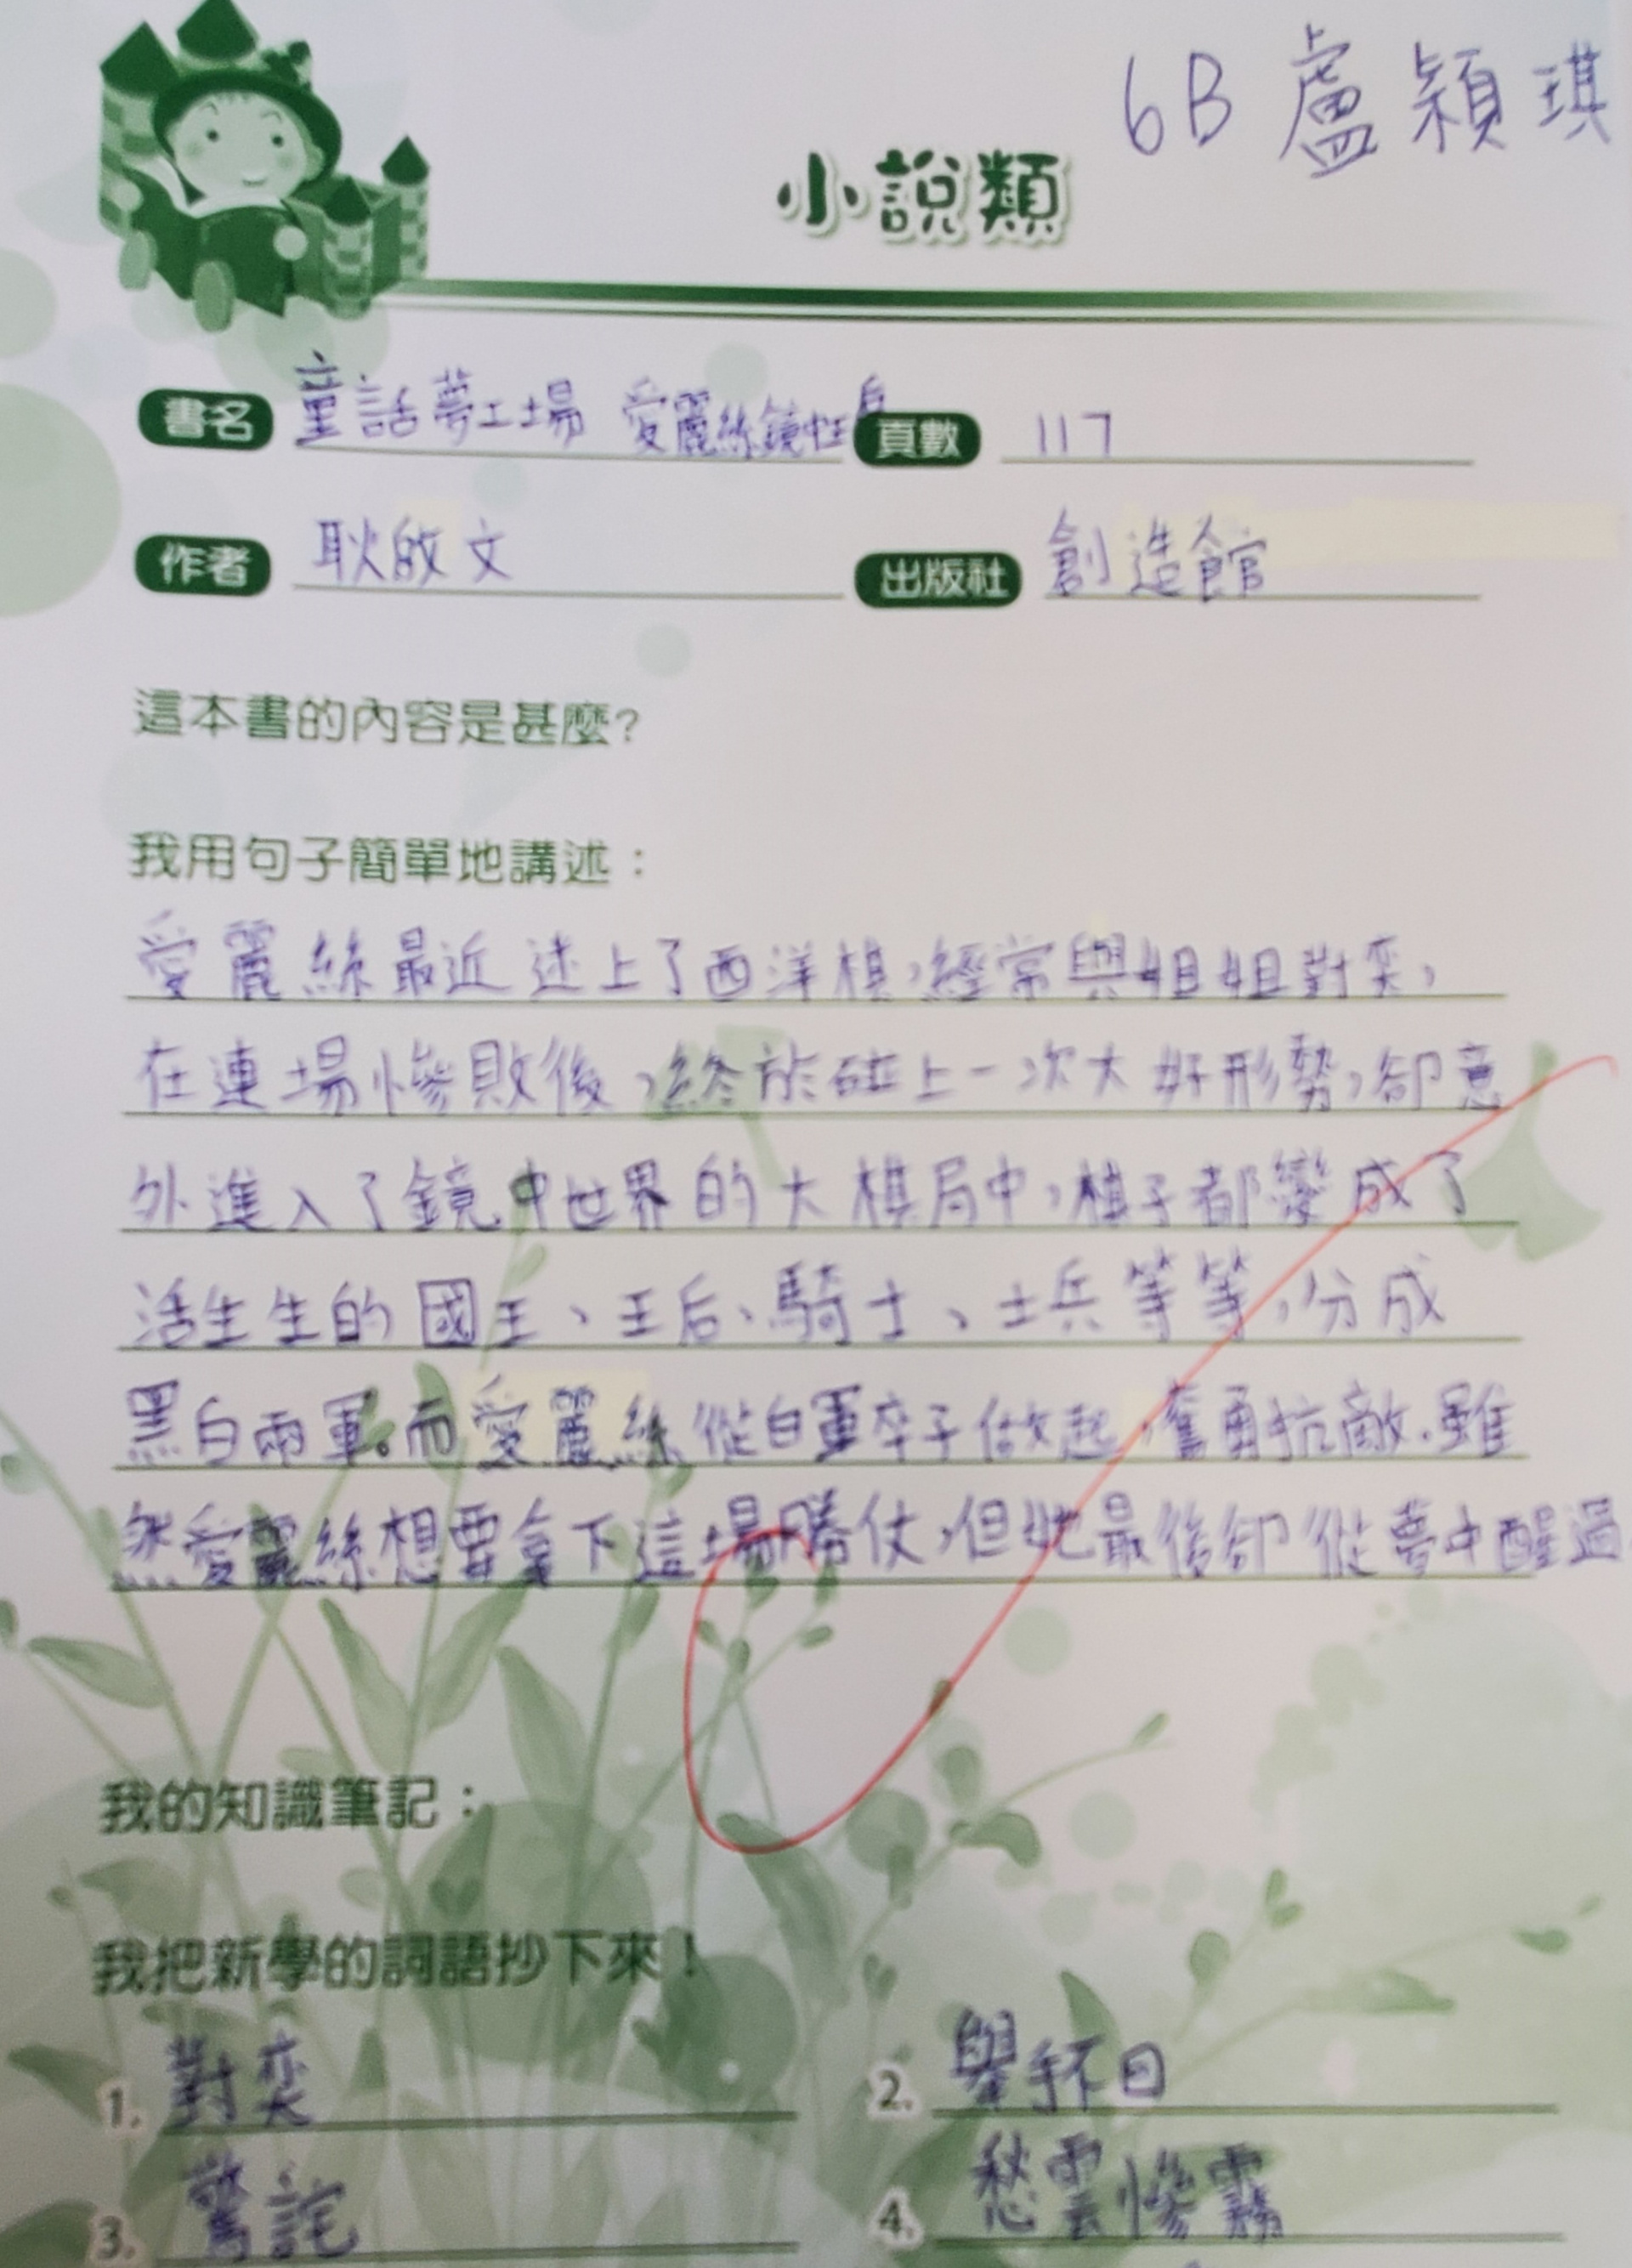 6B 盧穎琪
小說類
書名 童話夢工場 愛麗絲鏡中 頁數 117
作者 耿啟文 出版社 創造館
這本書的內容是甚麼?
我用句子簡單地講述：
愛麗絲最近迷上了西洋棋，經常與姐姐對奕，
在連場慘敗後，終於碰上一次大好形勢，卻意
外進入了鏡中世界的大棋局中，棋子都變成了
活生生的國王、王后、騎士、士兵等等，分成
黑白兩軍。而愛麗絲從白軍卒子做起，奮勇抗敵.雖
然愛麗絲想要拿下這場勝仗，但她最後卻從夢中醒過
我的知識筆記：
我把新學的詞語抄下來！
1. 對奕 2. 舉杯
3. 驚詫 4. 愁雲慘霧